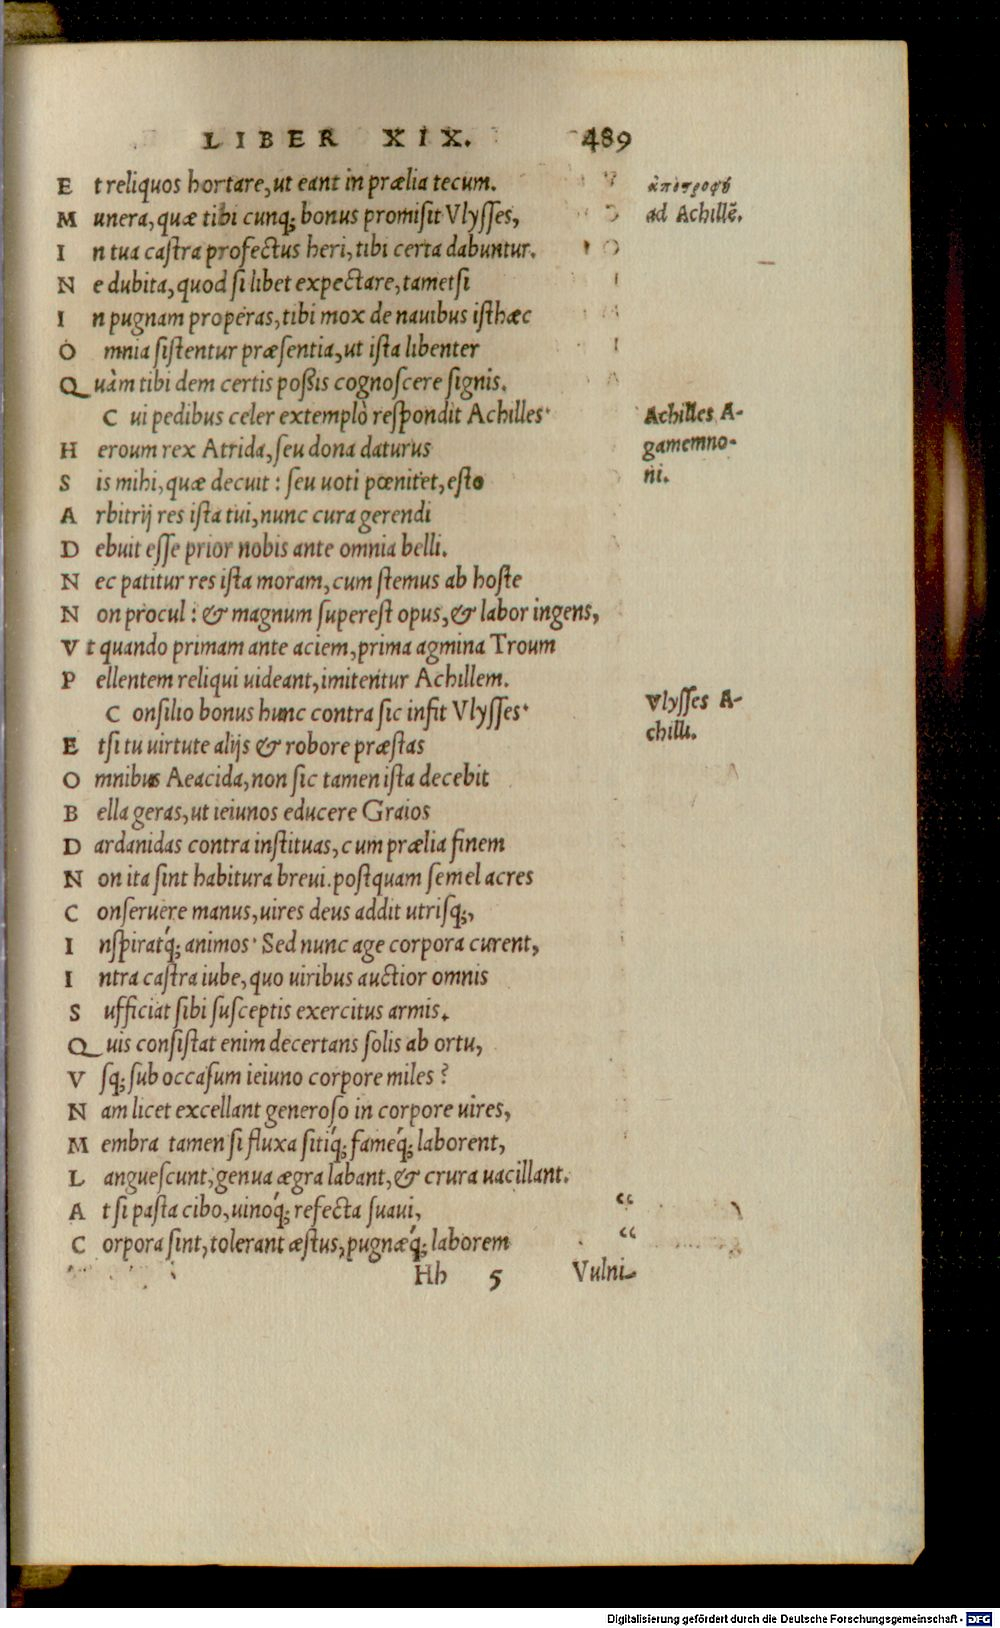 LIBER XIX. 489
E t reliquos hortare, ut eant in prælia tecum.
ἀποστροφὴ
M unera, quæ tibi cunq; bonus promisit Vlysses,
ad Achillē.
I n tua castra profectus heri, tibi certa dabuntur.
N e dubita, quod si libet expectare, tametsi
I n pugnam properas, tibi mox de nauibus isthæc
O mnia sistentur præsentia, ut ista libenter
Q uàm tibi dem certis poßis cognoscere signis.
C ui pedibus celer extemplò respondit Achilles·
Achilles A-
gamemno-
ni.
H eroum rex Atrida, seu dona daturus
S is mihi, quæ decuit: seu uoti pœnitet, esto
A rbitrij res ista tui, nunc cura gerendi
D ebuit esse prior nobis ante omnia belli.
N ec patitur res ista moram, cum stemus ab hoste
N on procul: & magnum superest opus, & labor ingens,
V t quando primam ante aciem, prima agmina Troum
P ellentem reliqui uideant, imitentur Achillem.
C onsilio bonus hunc contra sic infit Vlysses·
Vlysses A-
chilli.
E tsi tu uirtute alijs & robore præstas
O mnibus Aeacida, non sic tamen ista decebit
B ella geras, ut ieiunos educere Graios
D ardanidas contra instituas, cum prælia finem
N on ita sint habitura breui. postquam semel acres
C onseruere manus, uires deus addit utrisq;,
I nspiratq́; animos· Sed nunc age corpora curent,
I ntra castra iube, quo uiribus auctior omnis
S ufficiat sibi susceptis exercitus armis.
Q uis consistat enim decertans solis ab ortu,
V sq; sub occasum ieiuno corpore miles?
N am licet excellant generoso in corpore uires,
M embra tamen si fluxa sitiq́; fameq́; laborent,
L anguescunt, genua ægra labant, & crura uacillant.
A t si pasta cibo, uinoq́; refecta suaui, “
C orpora sint, tolerant æstus, pugnæq́; laborem “
Hh 5 Vulni-
Digitalisierung gefördert durch die Deutsche Forschungsgemeinschaft - DFG